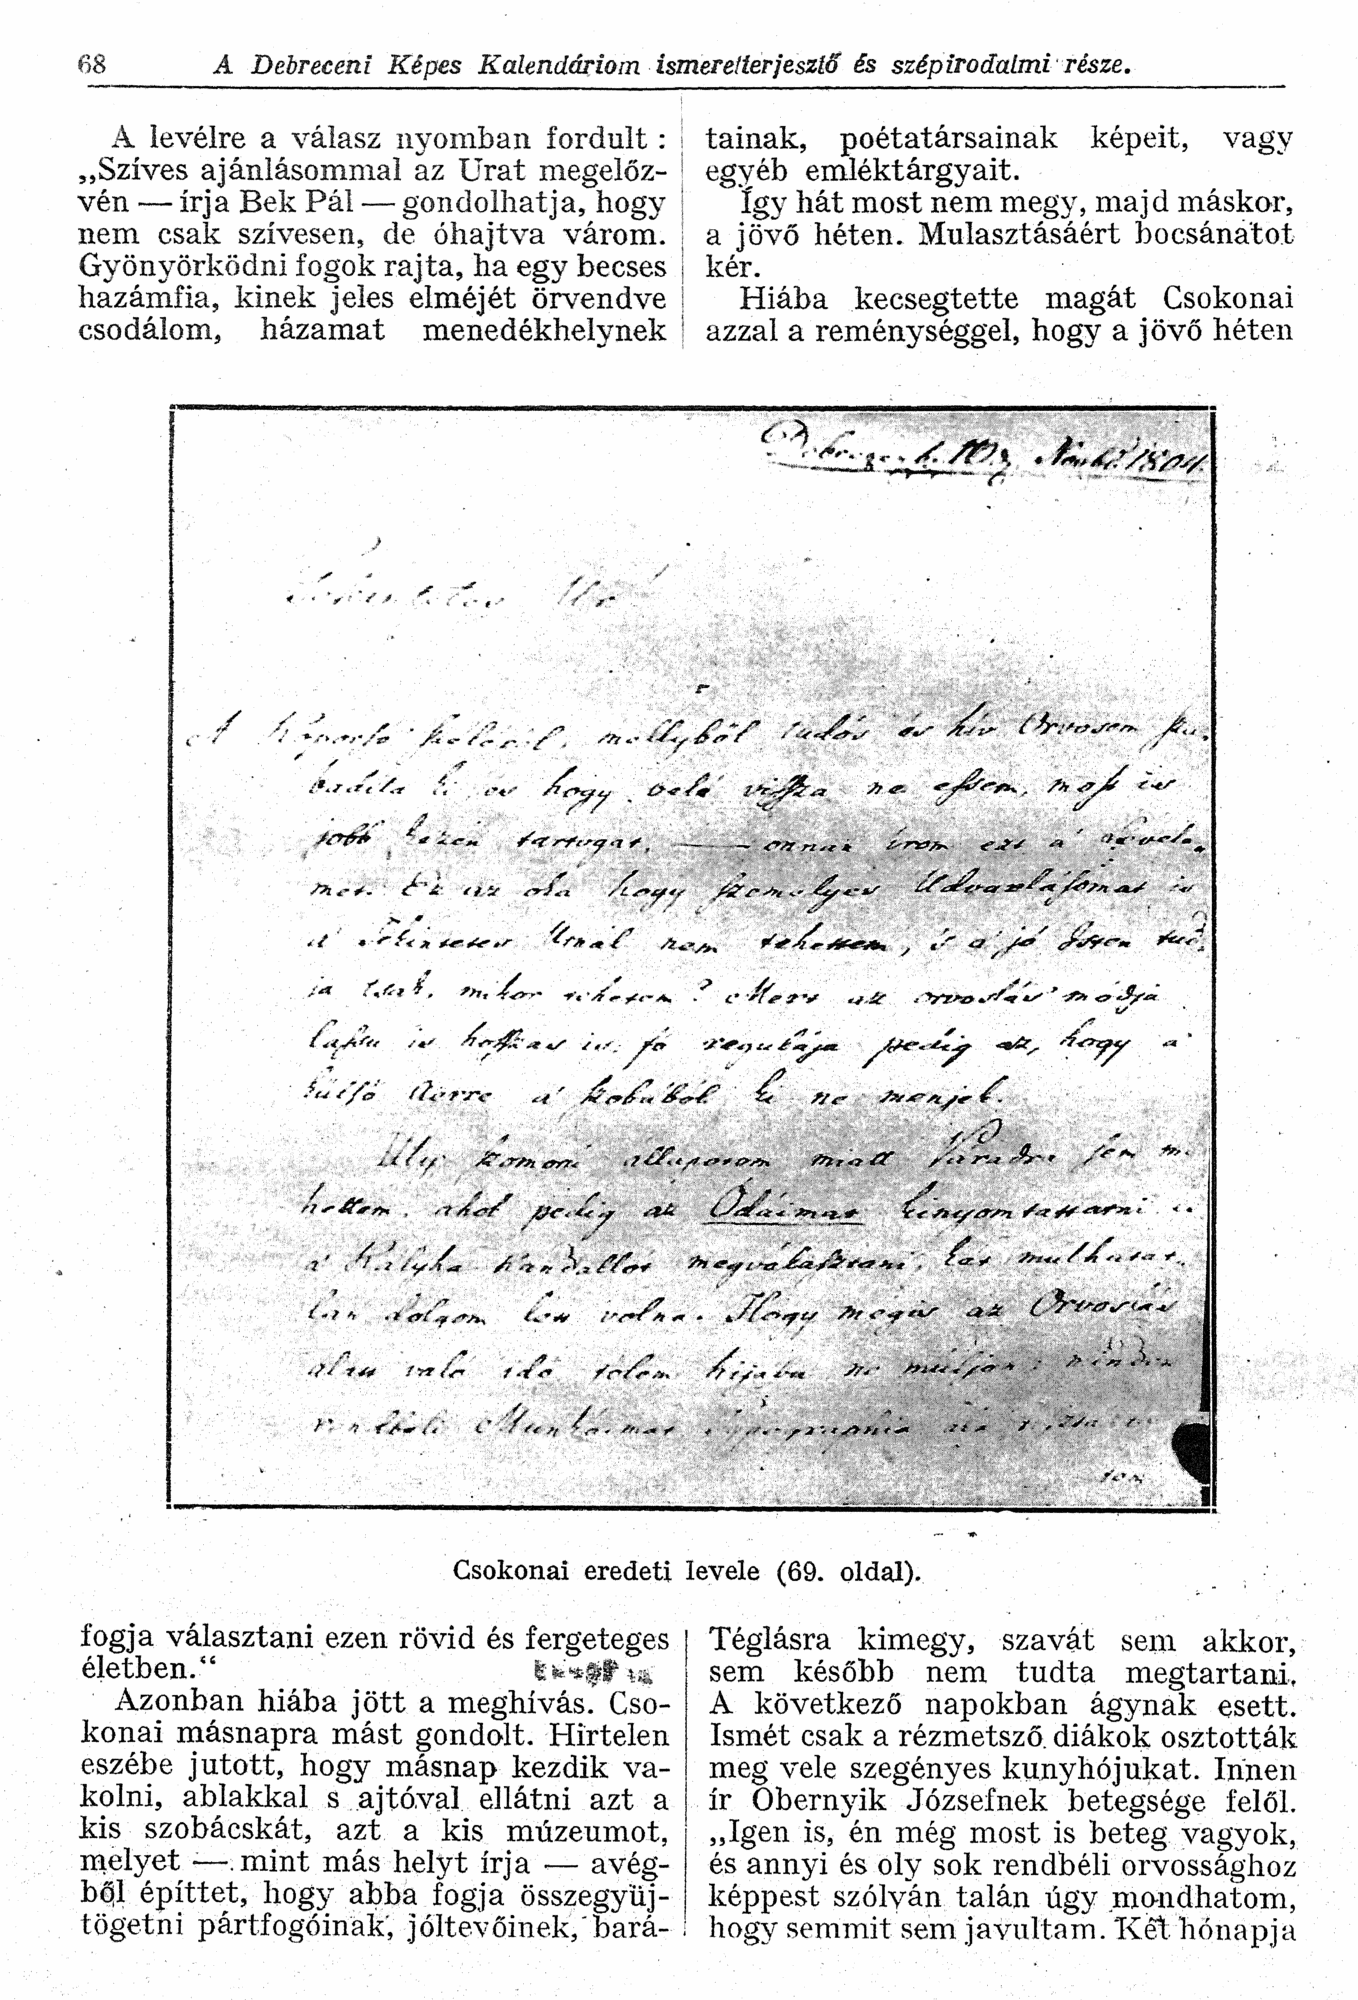 68 A Debreceni Képes Kalendáriom ismeretterjesztő és szépirodalmi része.
A levélre a válasz nyomban fordult:
„Szíves ajánlásommal az Urat megelőz-
vén — írja Bek Pál — gondolhatja, hogy
nem csak szívesen, de óhajtva várom.
Gyönyörködni fogok rajta, ha egy becses
hazámfia, kinek jeles elméjét örvendve
csodálom, házamat menedékhelynek
fogja választani ezen rövid és fergeteges
életben.“
Azonban hiába jött a meghívás. Cso-
konai másnapra mást gondolt. Hirtelen
eszébe jutott, hogy másnap kezdik va-
kolni, ablakkal s ajtóval ellátni azt a
kis szobácskát, azt a kis múzeumot,
melyet — mint más helyt írja — avég-
ből építtet, hogy abba fogja összegyüj-
tögetni pártfogóinak, jóltevőinek, bará-
tainak, poétatársainak képeit, vagy
egyéb emléktárgyait.
Így hát most nem megy, majd máskor,
a jövő héten. Mulasztásáért bocsánatot
kér.
Hiába kecsegtette magát Csokonai
azzal a reménységgel, hogy a jövő héten
Téglásra kimegy, szavát sem akkor,
sem később nem tudta megtartani.
A következő napokban ágynak esett.
Ismét csak a rézmetsző diákok osztották
meg vele szegényes kunyhójukat. Innen
ír Obernyik Józsefnek betegsége felől.
„Igen is, én még most is beteg vagyok,
és annyi és oly sok rendbéli orvossághoz
képpest szólván talán úgy mondhatom,
hogy semmit sem javultam. Két hónapja
1804.
Tekintetes Úr
A Káporsó széléről, mellyből tudós és hív Orvosom sza-
badíta ki, és hogy belé viszsza ne essem, most is
jobb kezén tartogat, — onnan írom ezt a' levele-
met. Ez az oka hogy személyes Udvarlásomat is
a' Tekintetes Úrnál nem tehettem, 's a' jó Isten tud-
ja csak, mikor tehetem? Mert az orvoslás' módja
lassu is hoszszas is: fő regulája pedig az, hogy a'
külső Aerre a' szobából ki ne menjek.
Illy szomorú állapotom miatt Váradra sem me-
hettem, ahol pedig az Ódáimat kinyomtattatni 's
a' Kályha kandallót megválasztani, két mulhatat-
lan dolgom lett volna. Hogy mégis az Orvoslás
alatt való idő tőlem híjába ne múljon: minden
rendbéli Munkáimat Typographia alá
Csokonai eredeti levele (69. oldal).